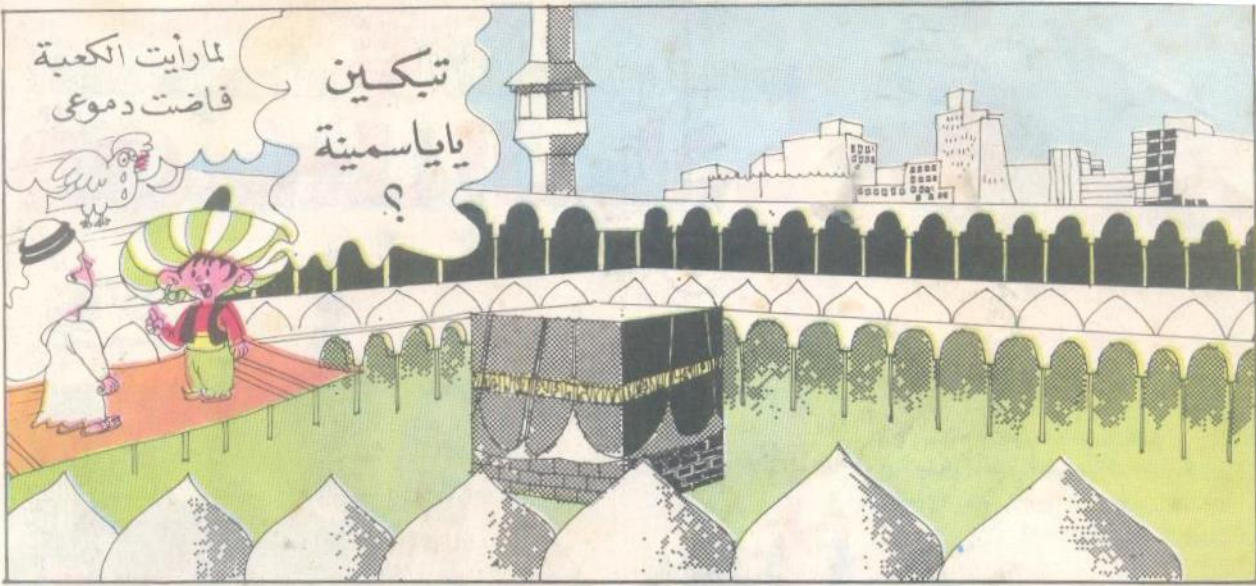 تبكين
ياياسمينة
؟
لما رأيت الكعبة
فاضت دموعى